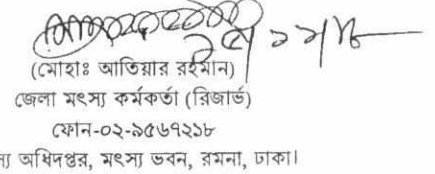 (মোহাঃ আতিয়ার রহমান)
জেলা মৎস্য কর্মকর্তা (রিজার্ভ)
ফোন-০২-৯৫৬৭২১৮
অধিদপ্তর, মৎস্য ভবন, রমনা, ঢাকা।